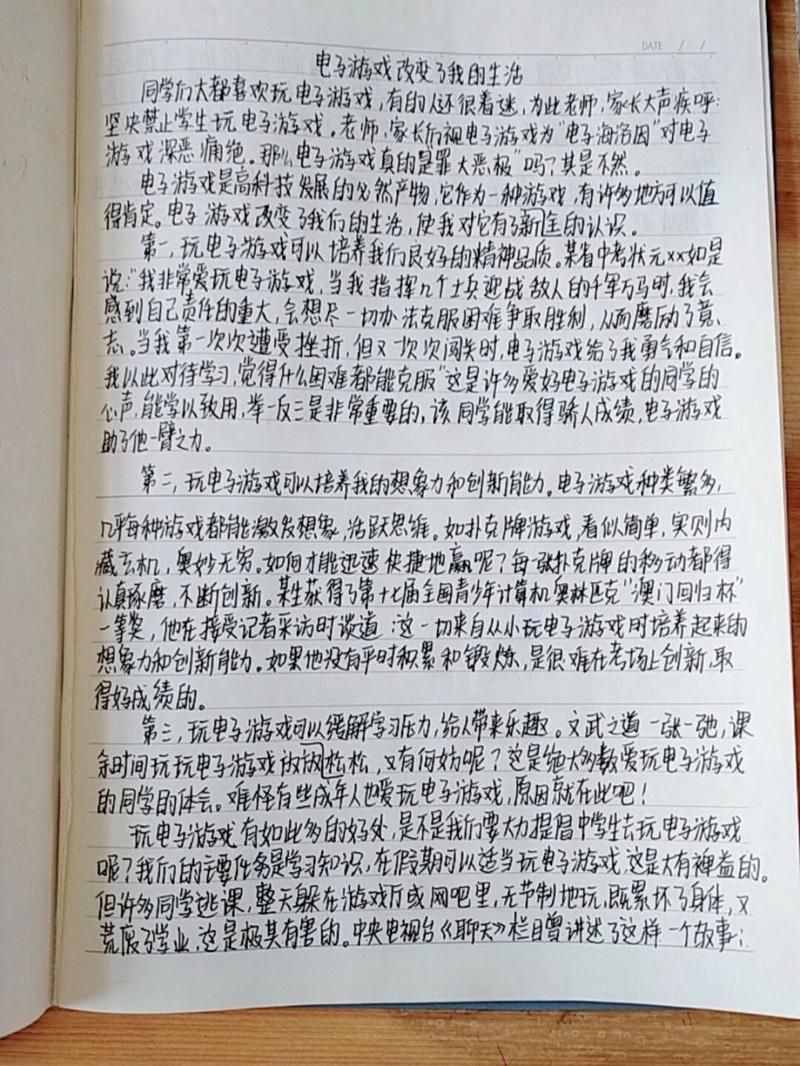 DATE / /
电子游戏改变了我的生活
同学们大都喜欢玩电子游戏,有的人还很着迷,为此老师,家长大声疾呼:
坚决禁止学生玩电子游戏。老师,家长们视电子游戏为"电子海洛因"对电子
游戏深恶痛绝。那么电子游戏真的是罪大恶极"吗?其是不然。
电子游戏是高科技发展的必然产物,它作为一种游戏,有许多地方可以值
得肯定。电子游戏改变了我们的生活,使我对它有了新的认识。
第一,玩电子游戏可以培养我们良好的精神品质。某省中考状元xx如是
说:"我非常爱玩电子游戏,当我指挥几个士兵迎战敌人的千军万马时,我会
感到自己责任的重大,会想尽一切办法克服困难争取胜利,从而磨励了意
志。当我第一次次遭受挫折,但又一次次闯关时,电子游戏给了我勇气和自信。
我以此对待学习,觉得什么困难都能克服"这是许多爱好电子游戏的同学的
心声,能学以致用,举一反三是非常重要的,该同学能取得骄人成绩,电子游戏
助了他一臂之力。
第二,玩电子游戏可以培养我的想象力和创新能力。电子游戏种类繁多,
几乎每种游戏都能激发想象,活跃思维。如扑克牌游戏,看似简单,实则内
藏玄机,奥妙无穷。如何才能迅速快捷地赢呢?每一张扑克牌的移动都得
认真琢磨,不断创新。某生获得了第十七届全国青少年计算机奥林匹克"澳门回归杯"
一等奖,他在接受记者采访时谈道:这一切来自从小玩电子游戏时培养起来的
想象力和创新能力。如果他没有平时积累和锻炼,是很难在考场上创新,取
得好成绩的。
第三,玩电子游戏可以缓解学习压力,给人带来乐趣。文武之道一张一弛,课
余时间玩玩电子游戏放放松松,又有何妨呢?这是绝大多数爱玩电子游戏
的同学的体会。难怪有些成年人也爱玩电子游戏,原因就在此吧!
玩电子游戏有如此多的好处,是不是我们要大力提倡中学生去玩电子游戏
呢?我们的主要任务是学习知识,在假期可以适当玩电子游戏,这是大有裨益的。
但许多同学逃课,整天躲在游戏厅或网吧里,无节制地玩,既累坏了身体,又
荒废了学业,这是极其有害的。中央电视台《聊天》栏目曾讲述了这样一个故事;